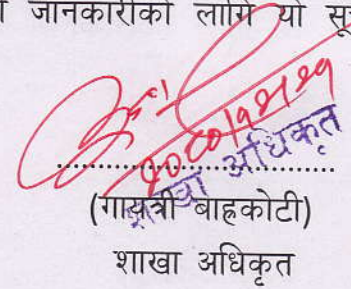 जानकारीको लागि यो
२०८०।१२।२१
शाखा अधिकृत
(गायत्री बाहकोटी)
शाखा अधिकृत